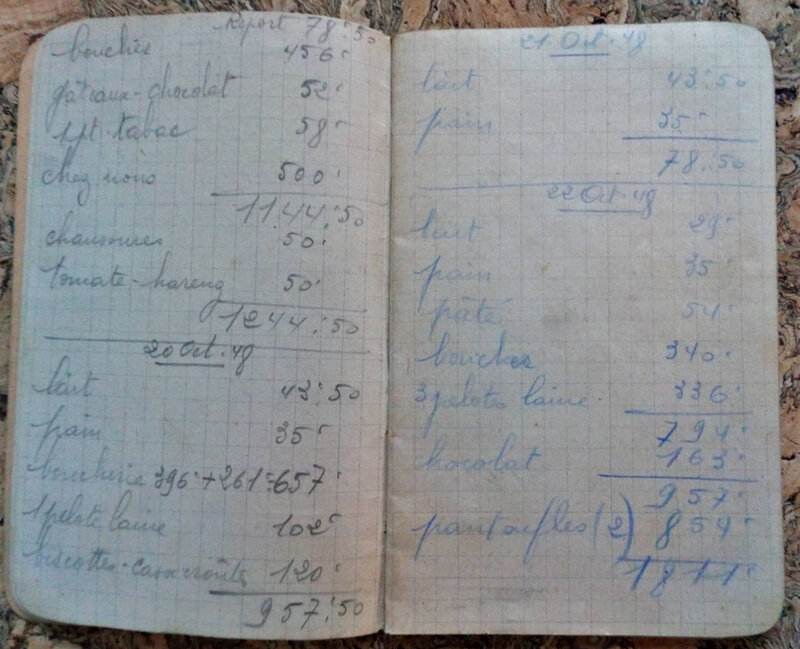 Report 78f50
bouchés 456f
gâteaux-chocolat 52f
1pt tabac 58f
chez nous 500f
1144f50
chaussures 50f
tomate-hareng 50f
1244f50
20 Oct. 48
lait 43f50
pain 35f
boucherie 396f+261f=657f
1 pelote laine 102f
biscottes-casse croûte 120f
957f50
21 Oct. 48
lait 43f50
pain 35f
78f50
22 Oct. 48
lait 29f
pain 35f
pâté 54f
boucher 340f
3 pelotes laine 336f
794f
chocolat 163f
957f
pantoufles (2) 854f
1811f